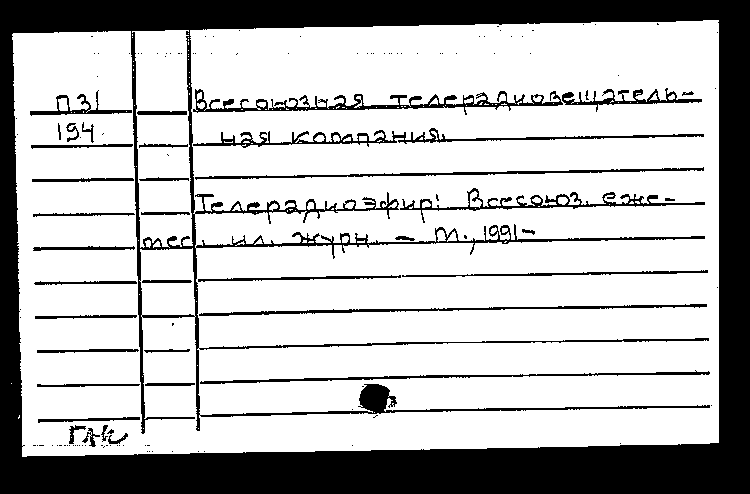 П31 Всесоюзная телерадиовещатель-
194 ная компания.
Телерадиоэфир: Всесоюз. еже-
мес. ил. журн. – М., 1991–
ГАК